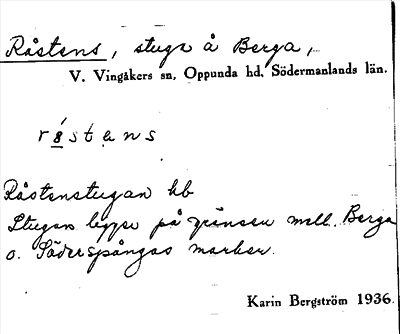 Råstens, stuga å Berga,
V. Vingåkers sn, Oppunda hd, Södermanlands län.
rå̱stens
Råstenstugan hb
Stugan ligger på gränsen mell. Berga
o. Söderspångas marker.
Karin Bergström 1936.